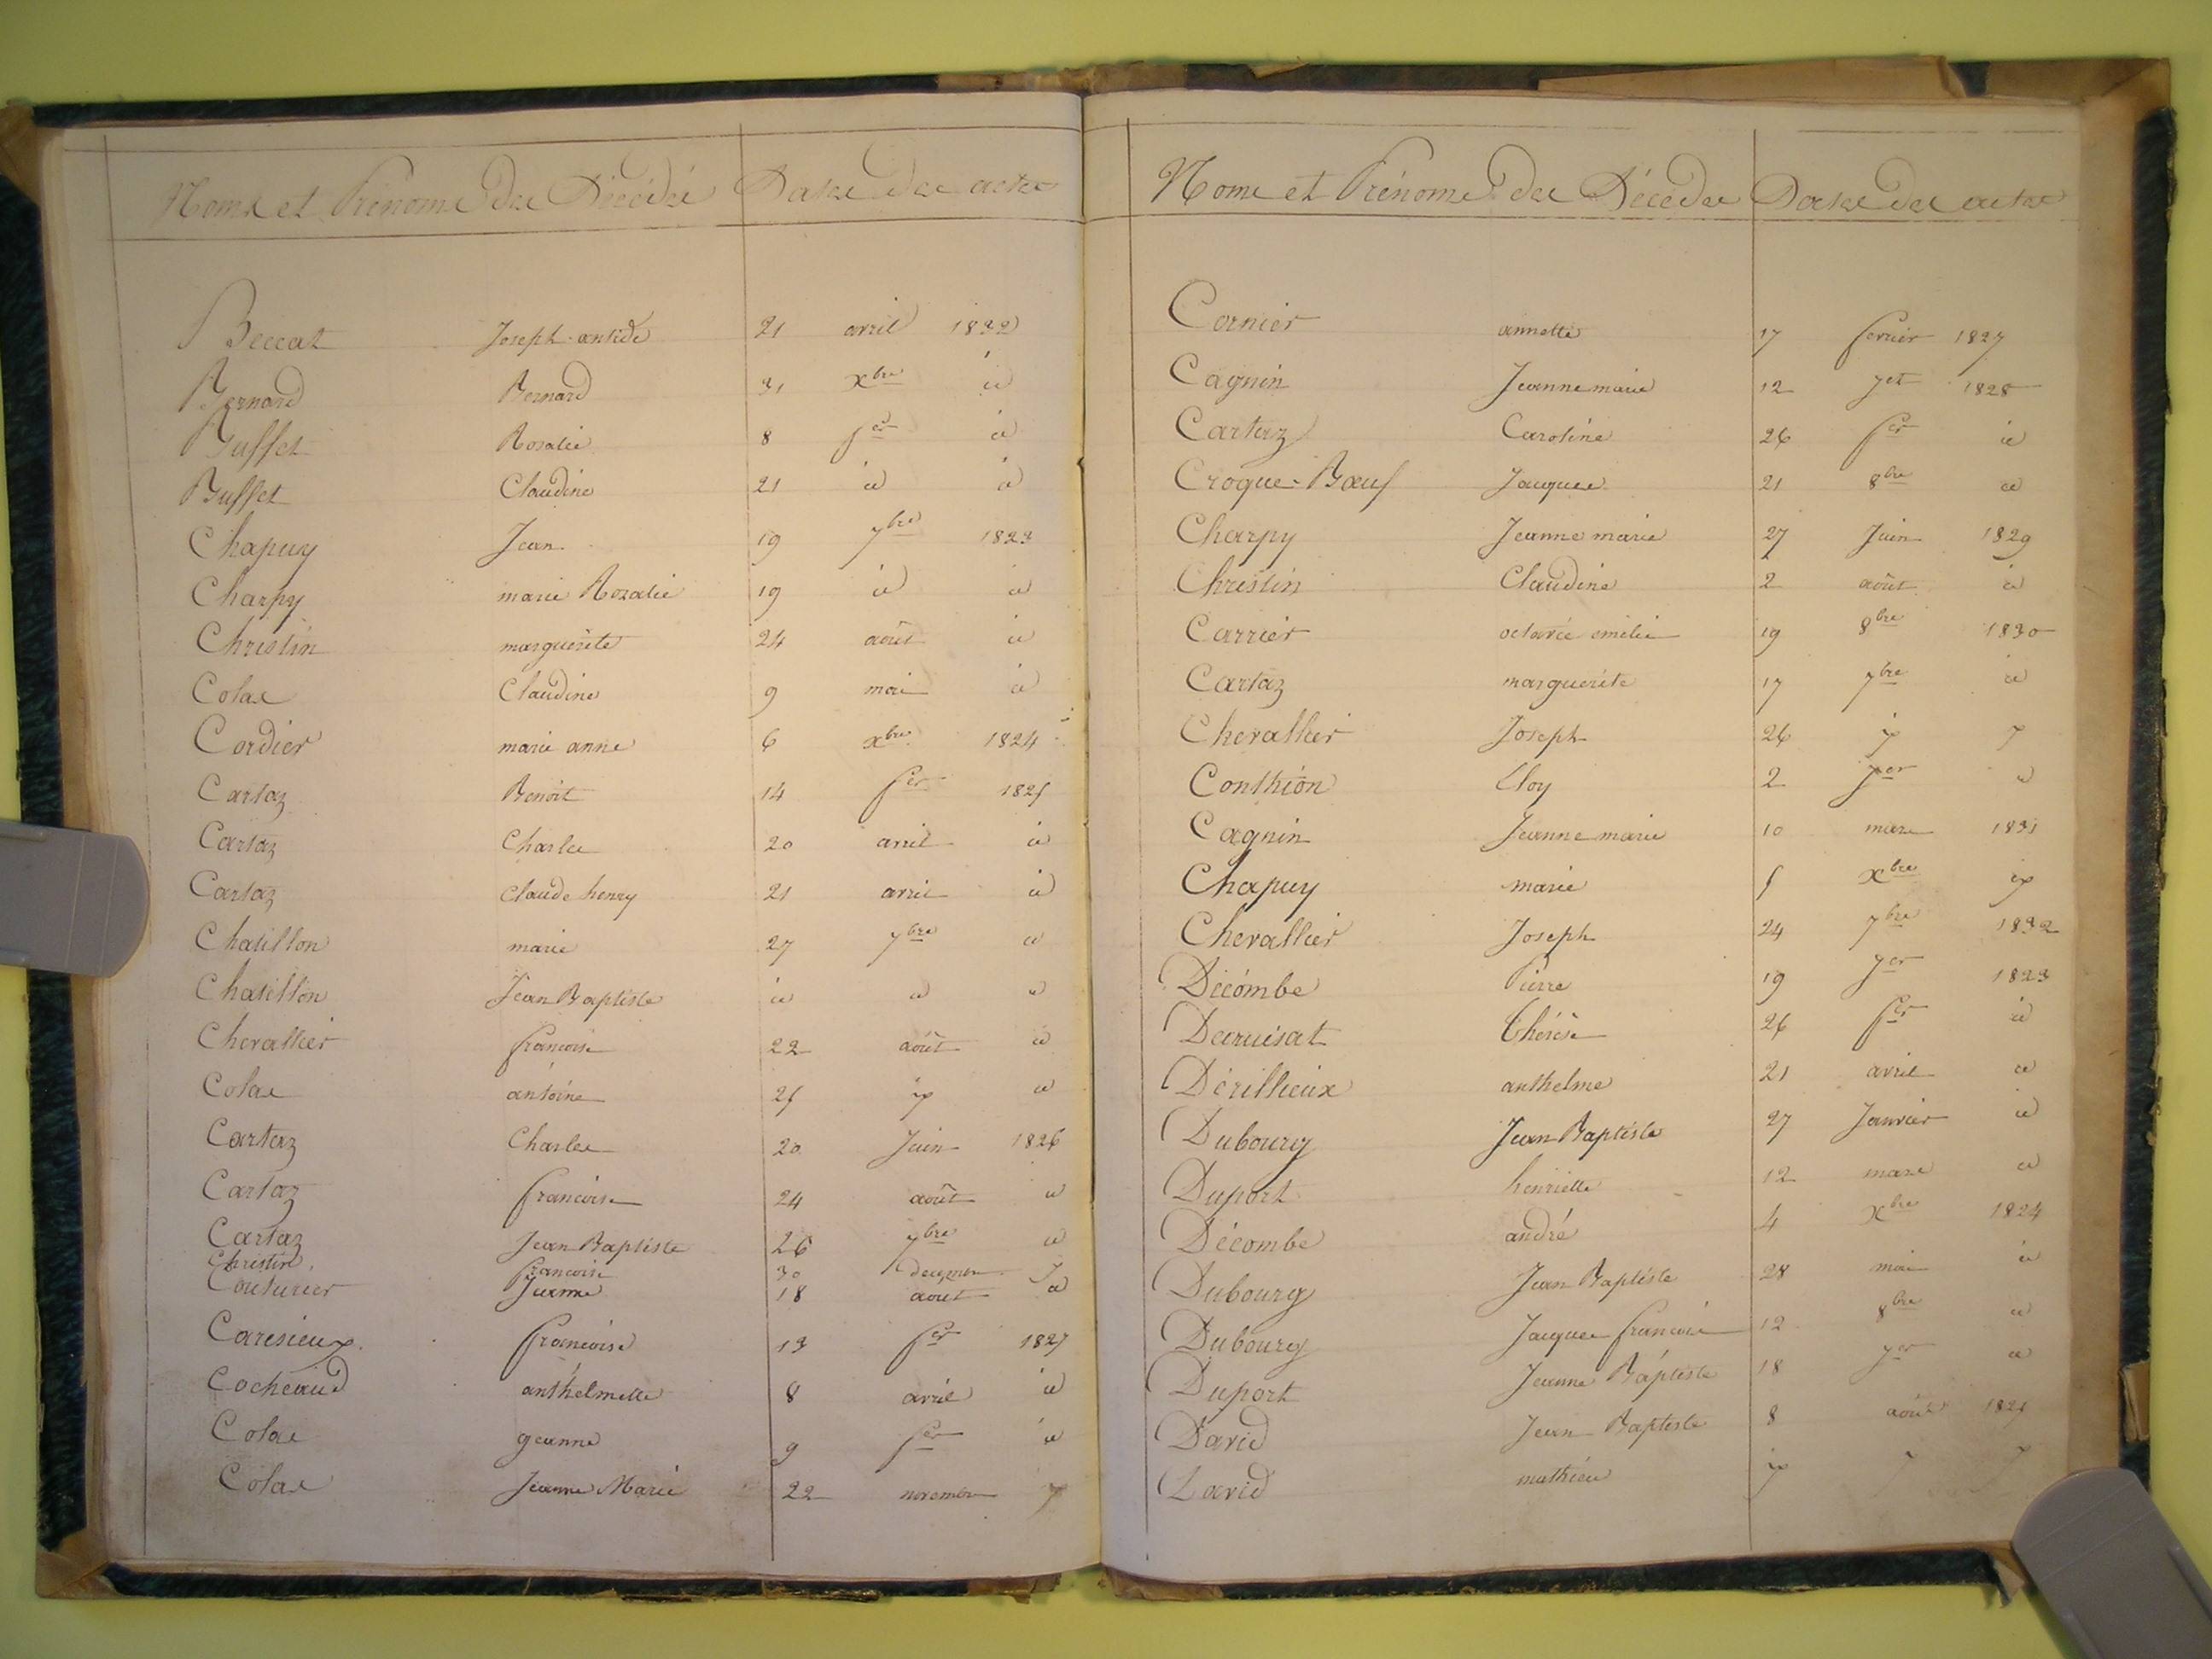 Noms et Prénoms des Décédés Dates des actes
Beccat Joseph antide 21 avril 1832
Bernard Bernard 31 xbre id
Buffet Rosalie 8 fer id
Buffet Claudine 21 id id
Chapuy Jean 19 7bre 1823
Charpy marie Rozalie 19 id id
Christin marguerite 24 août id
Colas Claudine 9 mai id
Cordier marie anne 6 xbre 1824
Cartaz Benoit 14 fer 1825
Cartaz Charles 20 avril id
Cartaz Claude henry 21 avril id
Chatillon marie 27 7bre id
Chatillon Jean Baptiste id id id
Chevallier françoise 22 août id
Colas antoine 25 id id
Cartaz Charles 20 Juin 1826
Cartaz françoise 24 août id
Cartaz Jean Baptiste 26 7bre id
Christin françoise 30 decembre
Couturier Jeanne 18 aout id
Caresieux françoise 13 fer 1827
Cocheaud anthelmette 8 avril id
Colas geanne 9 fer id
Colas Jeanne Marie 22 novembre id
Noms et Prénoms des Décédés Dates des actes
Cornier annette 17 fevrier 1827
Cagnin Jeanne marie 12 jet 1828
Cartaz Caroline 26 fer id
Croque-Bœuf Jacques 21 8bre id
Charpy Jeanne marie 27 Juin 1829
Christin Claudine 2 août id
Carrier octavie emélie 19 8bre 1830
Cartaz marguerite 17 7bre id
Chevallier Joseph 26 id
Conthion Eloy 2 jer id
Cagnin Jeanne marie 10 mars 1831
Chapuy marie 5 xbre id
Chevallier Joseph 24 7bre 1832
Décombe Pierre 19 jer 1823
Decruisat thérèse 26 fer id
Dérillieux anthelme 21 avril id
Dubourg Jean Baptiste 27 Janvier id
Duport henriette 12 mars id
Décombe andré 4 xbre 1824
Dubourg Jean Baptiste 28 mai id
Dubourg Jacques françois 12 8bre id
Duport Jeanne Baptiste 18 jer id
David Jean Baptiste 8 août 1825
David mathieu id